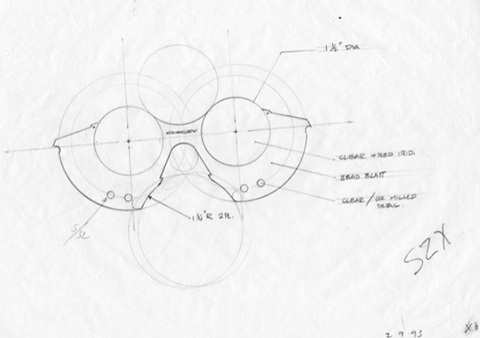 1 ⅛" DIA
CLEAR + RED IRID.
BEAD BLAST
CLEAR / OR MILLED
DETAIL.
1 ¼" R 2 PL.
5/32
SZX
2 9 93